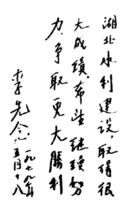 湖北水利建设，取得很
大成绩，希望继续努
力，争取更大胜利
李先念
一九七九年
五月十八